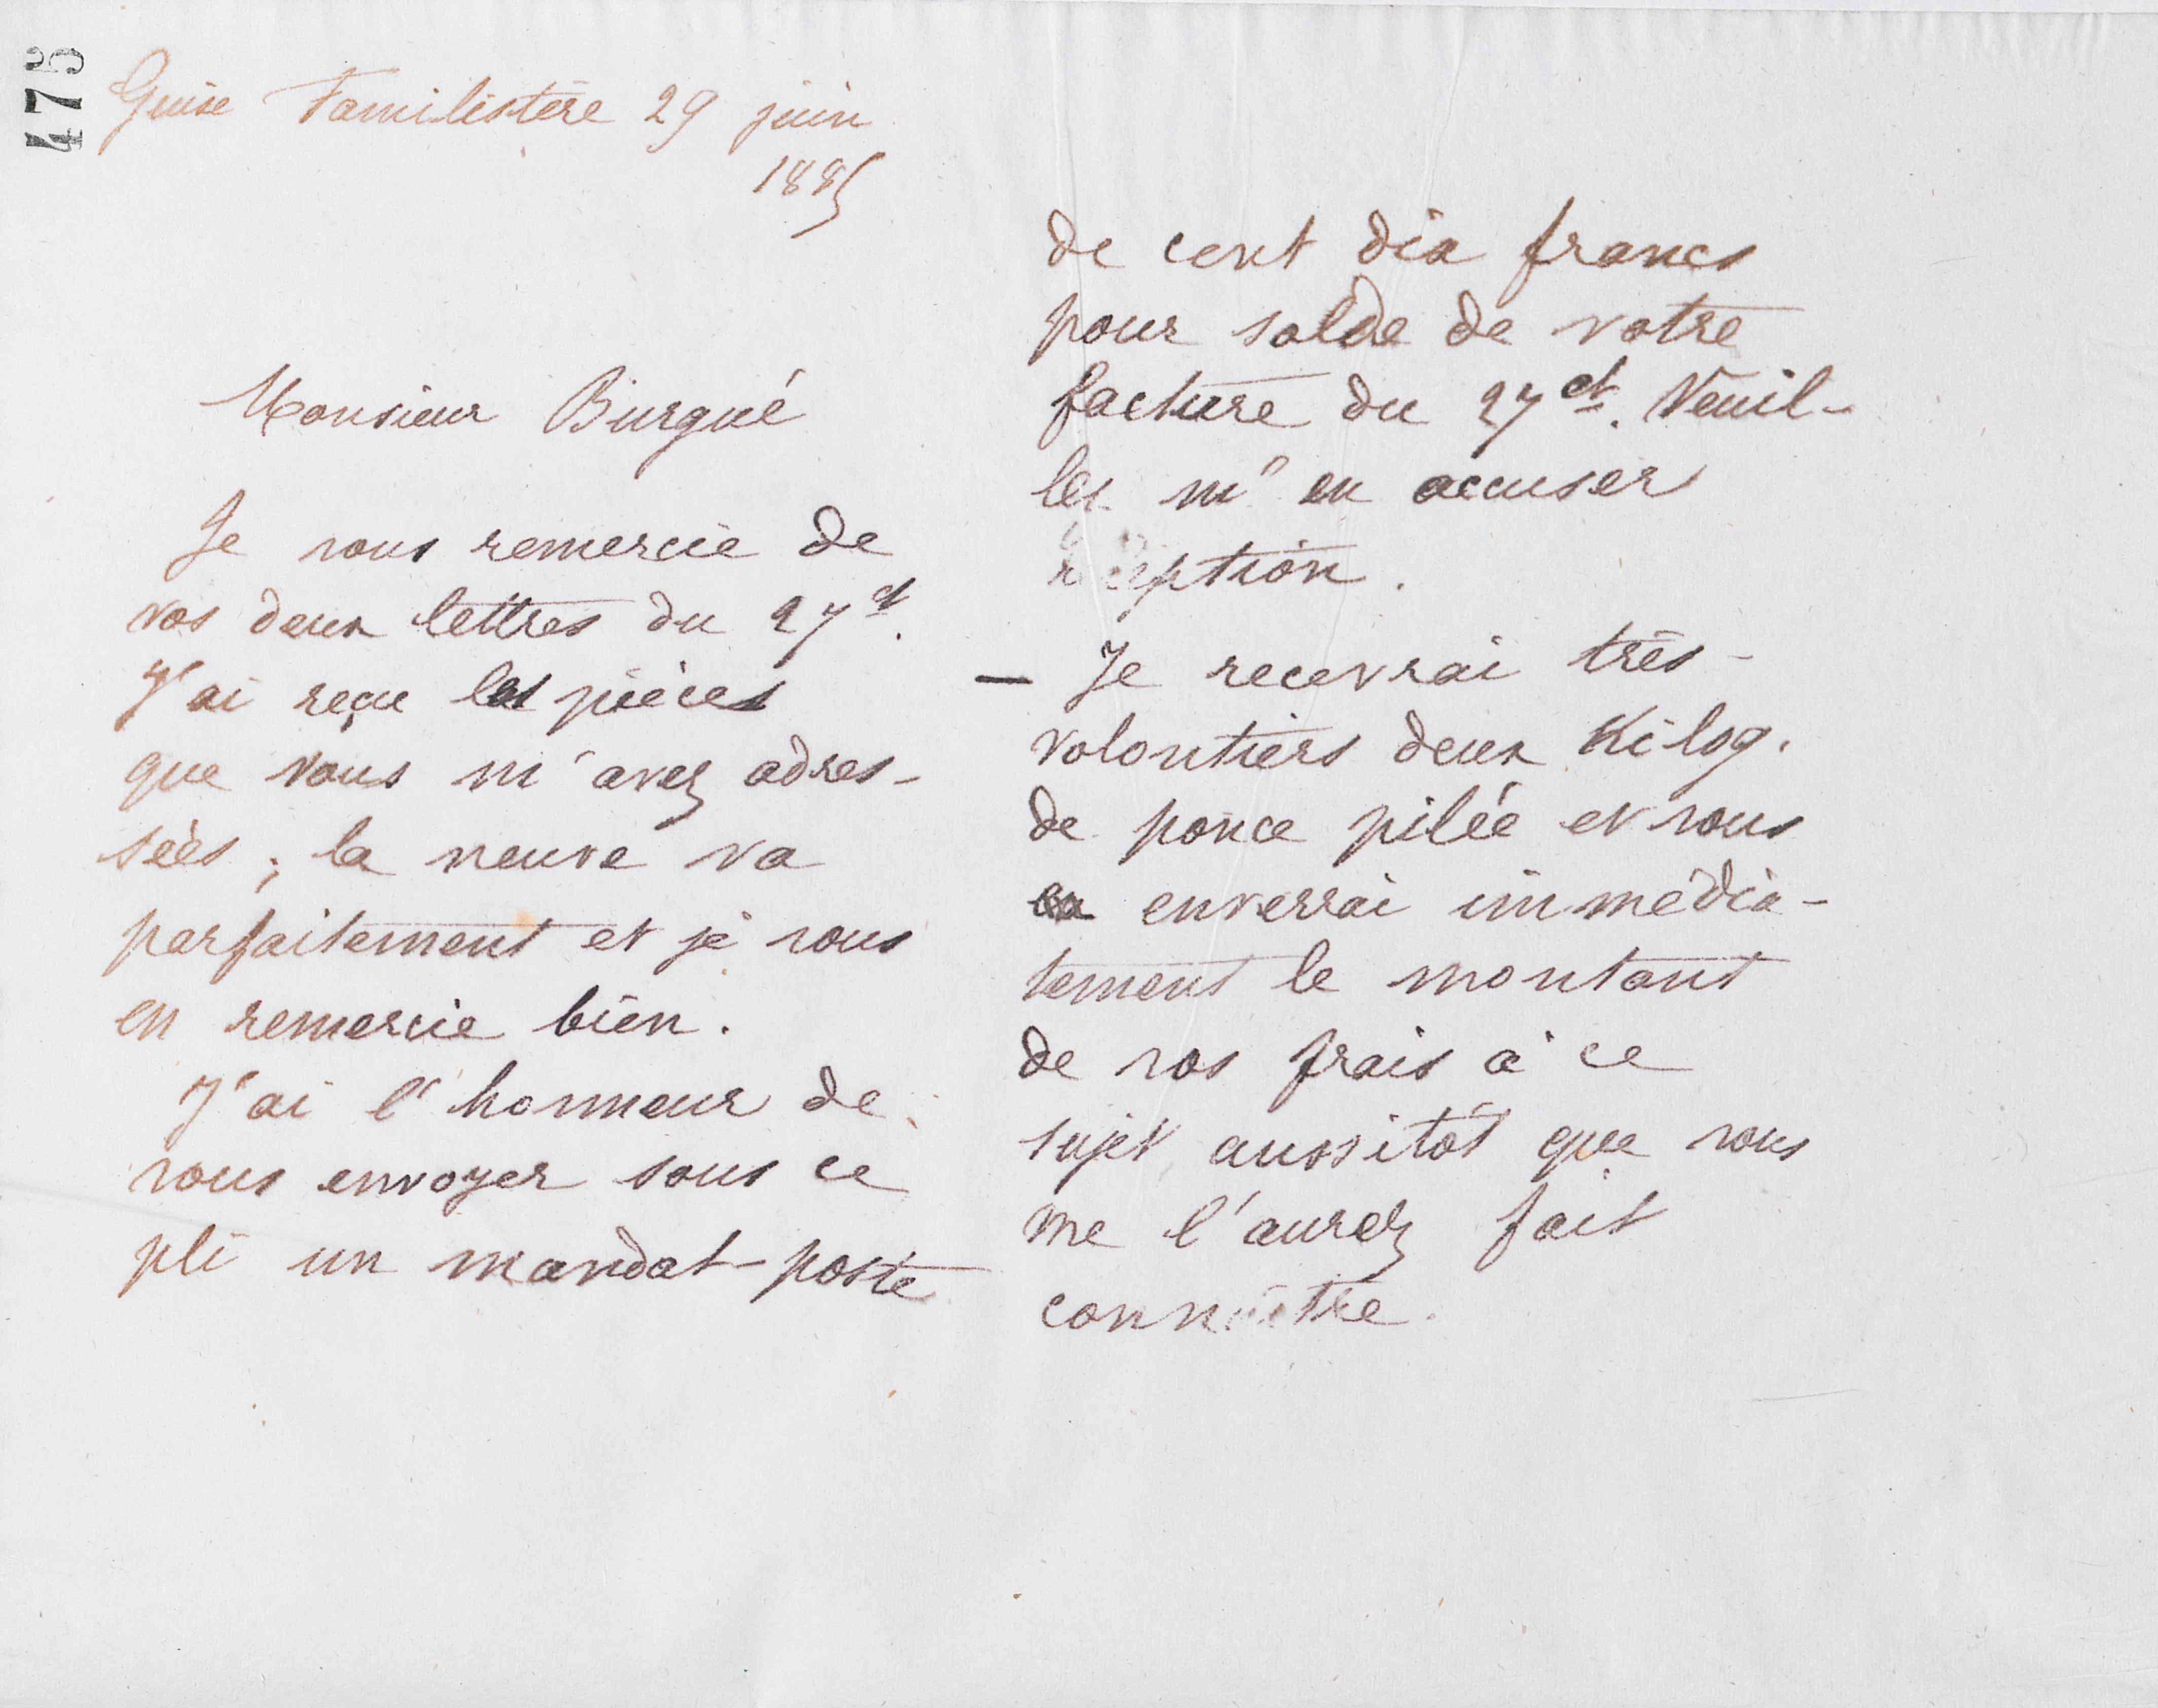 475
Guise Familistère 29 juin
1885
Monsieur Burgué
Je vous remercie de
vos deux lettres du 27 ct.
J'ai reçu les pièces
que vous m'avez adres-
sées ; la neuve va
parfaitement et je vous
en remercie bien.
J'ai l'honneur de
vous envoyer sous ce
pli un mandat-poste
de cent dix francs
pour solde de votre
facture du 27 ct. Veuil-
lez m'en accuser
réception.
— Je recevrai très-
volontiers deux Kilog.
de ponce pilée et vous
enverrai immédia-
tement le montant
de vos frais à ce
sujet aussitôt que vous
me l'aurez fait
connaître.